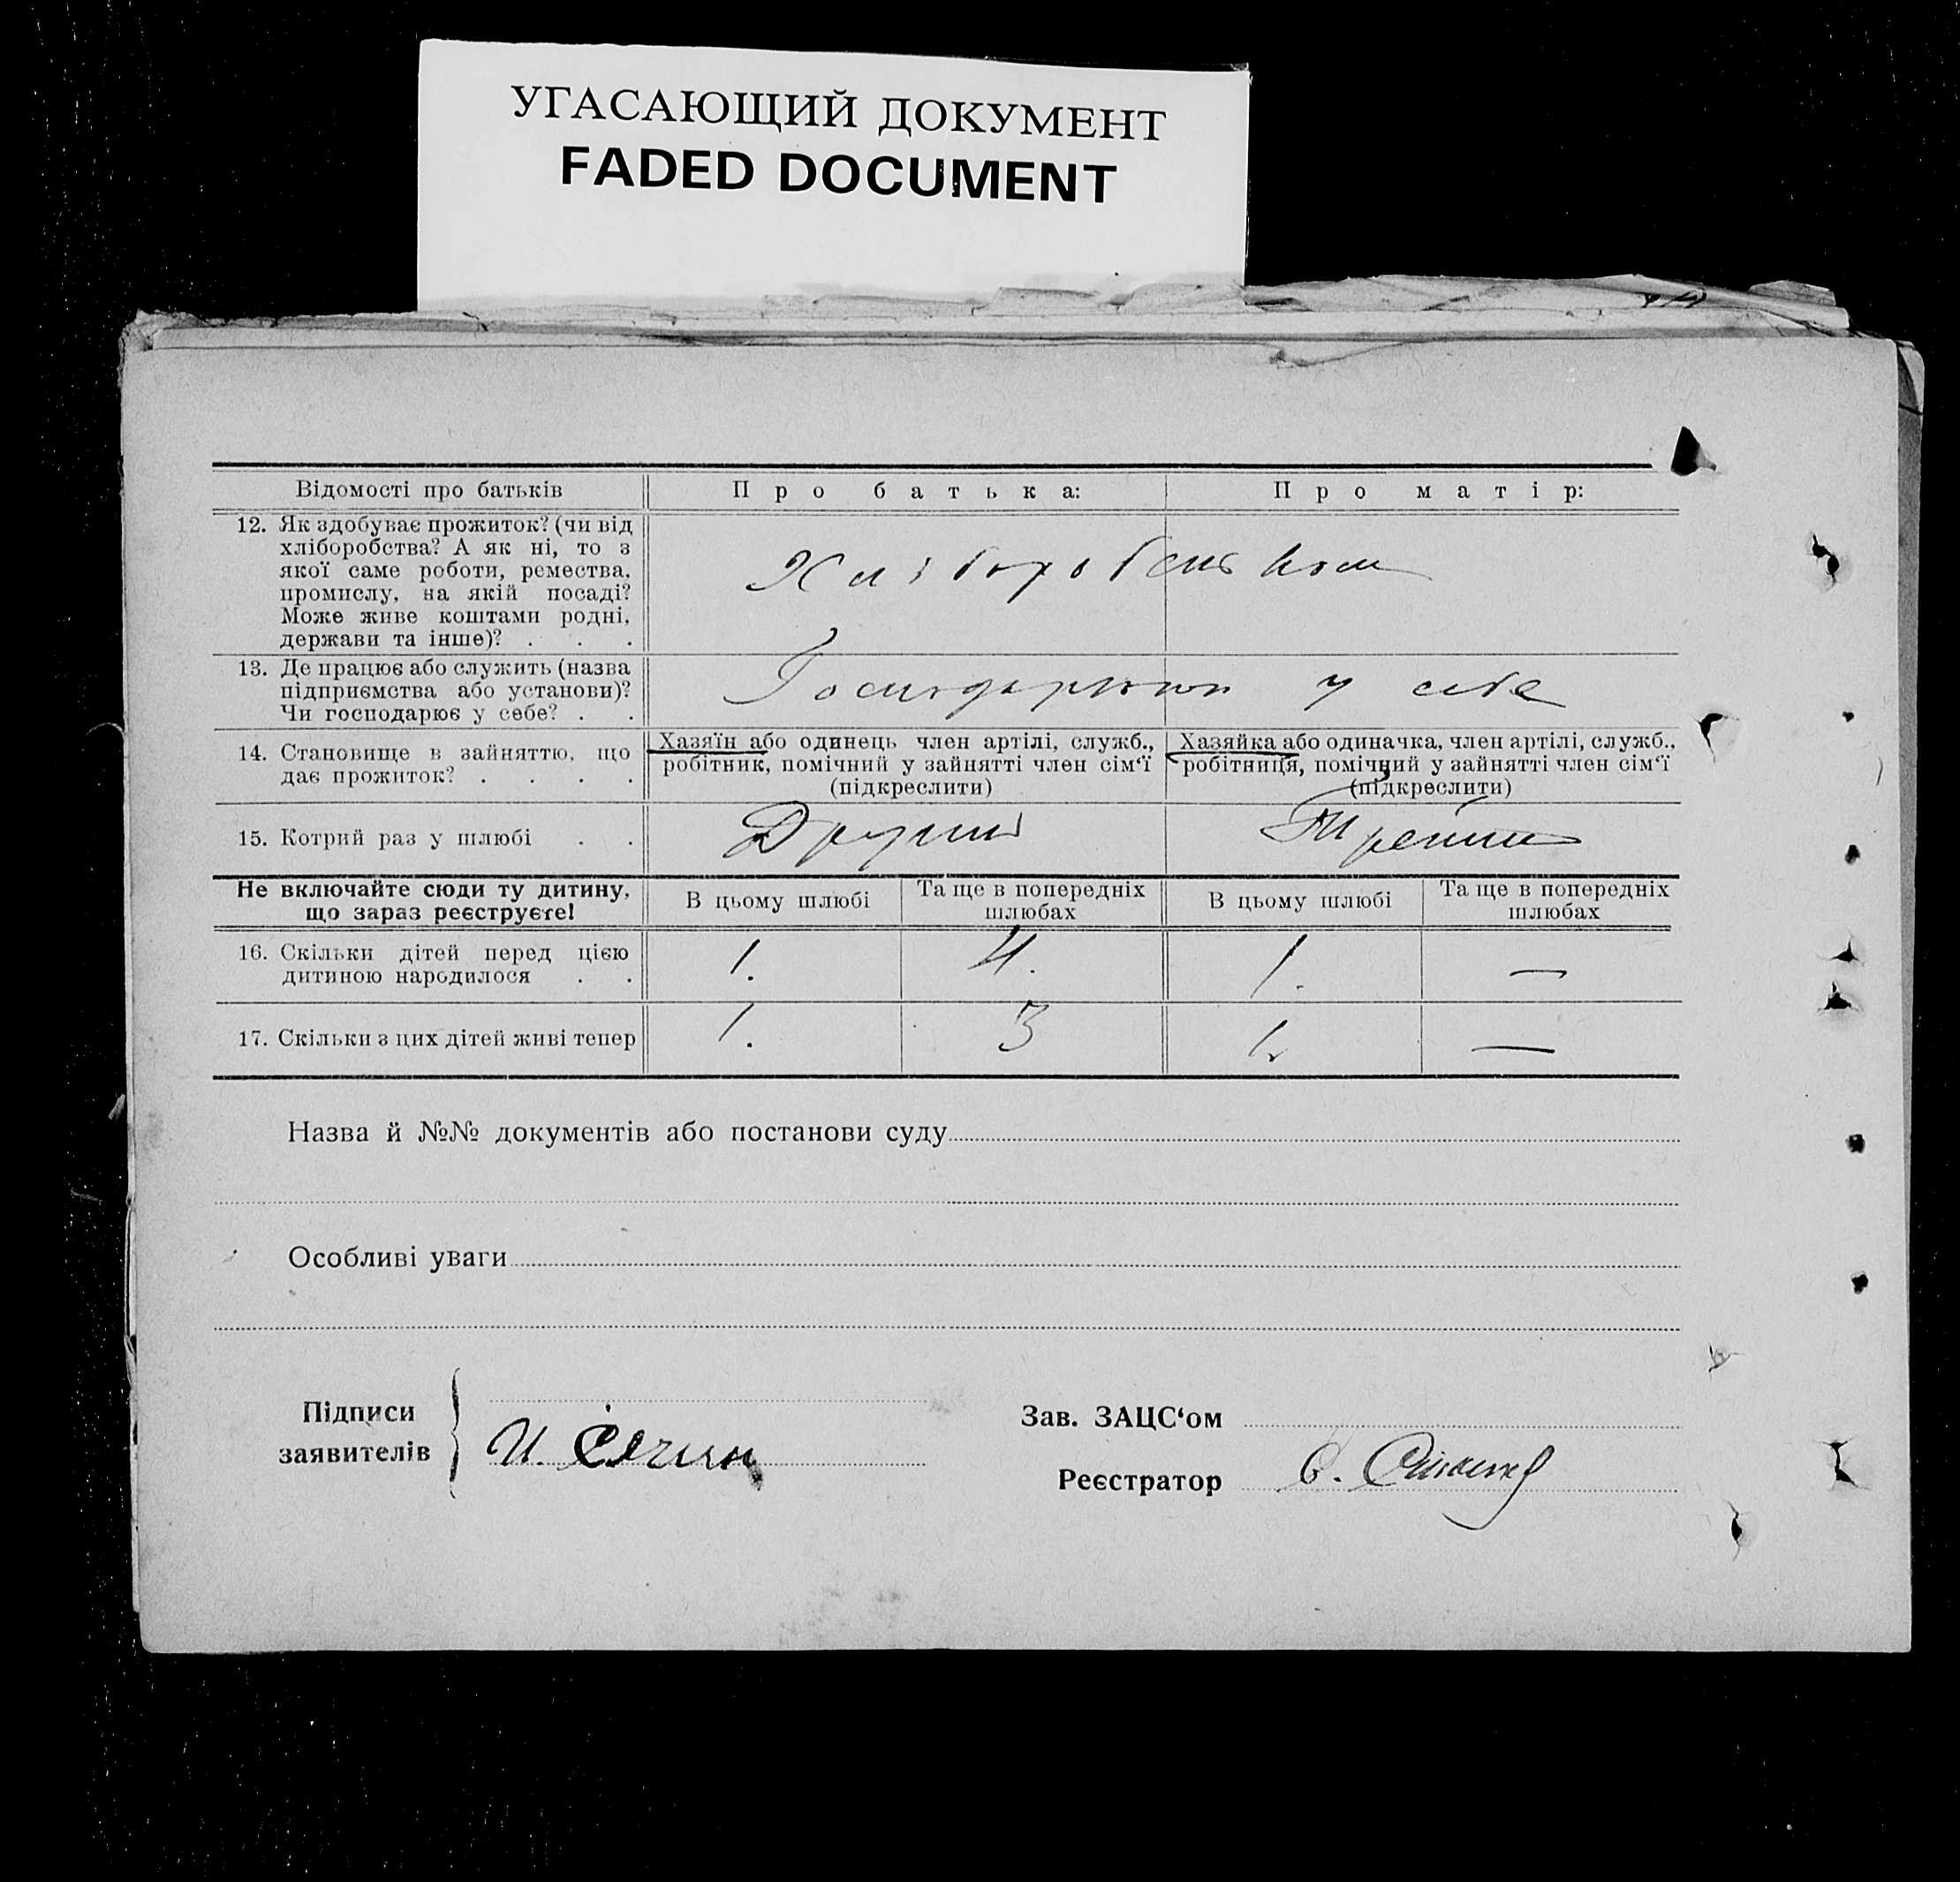 УГАСАЮЩИЙ ДОКУМЕНТ
FADED DOCUMENT
Відомості про батьків
Про батька:
Про матір:
12. Як здобуває прожиток? (чи від
хліборобства? А як ні, то з
якої саме роботи, ремества,
промислу, на якій посаді?
Може живе коштами родні,
держави та інше)? . . .
Хліборобством
13. Де працює або служить (назва
підприємства або установи)?
Чи господарює у себе? . .
у себе
14. Становище в зайняттю, що
дає прожиток? . . . .
Хазяїн або одинець член артілі, служб.,
робітник, помічний у зайнятті член сім‘ї
(підкреслити)
Хазяйка або одиначка, член артілі, служб.,
робітниця, помічний у зайнятті член сім‘ї
(підкреслити)
15. Котрий раз у шлюбі . .
Другий
Третій
Не включайте сюди ту дитину,
що зараз реєструєте!
В цьому шлюбі
Та ще в попередніх
шлюбах
В цьому шлюбі
Та ще в попередніх
шлюбах
16. Скільки дітей перед цією
дитиною народилося . .
1.
4.
1.
—
17. Скільки з цих дітей живі тепер
1.
3
1.
—
Назва й №№ документів або постанови суду
Особливі уваги
Підписи
заявителів
И.
Зав. ЗАЦС‘ом
Реєстратор
С.